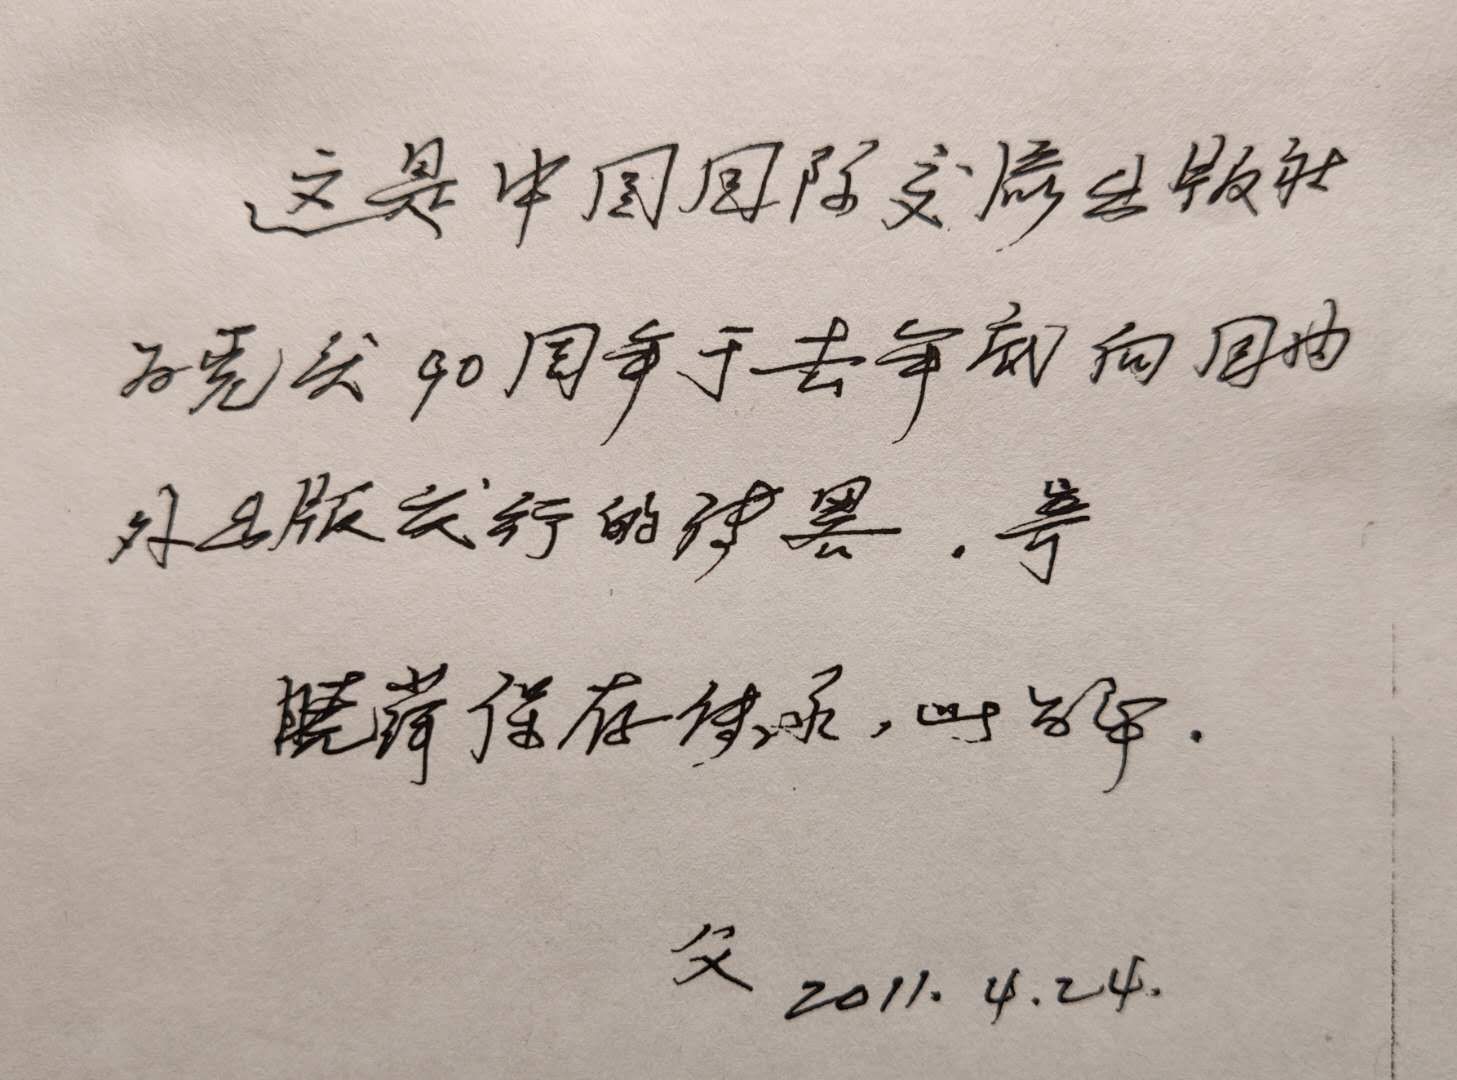 这是中国国际交流出版社
为党庆90周年于去年底向国内
外出版发行的诗选.寄
晓萍保存传承,此为第.
父 2011.4.24.